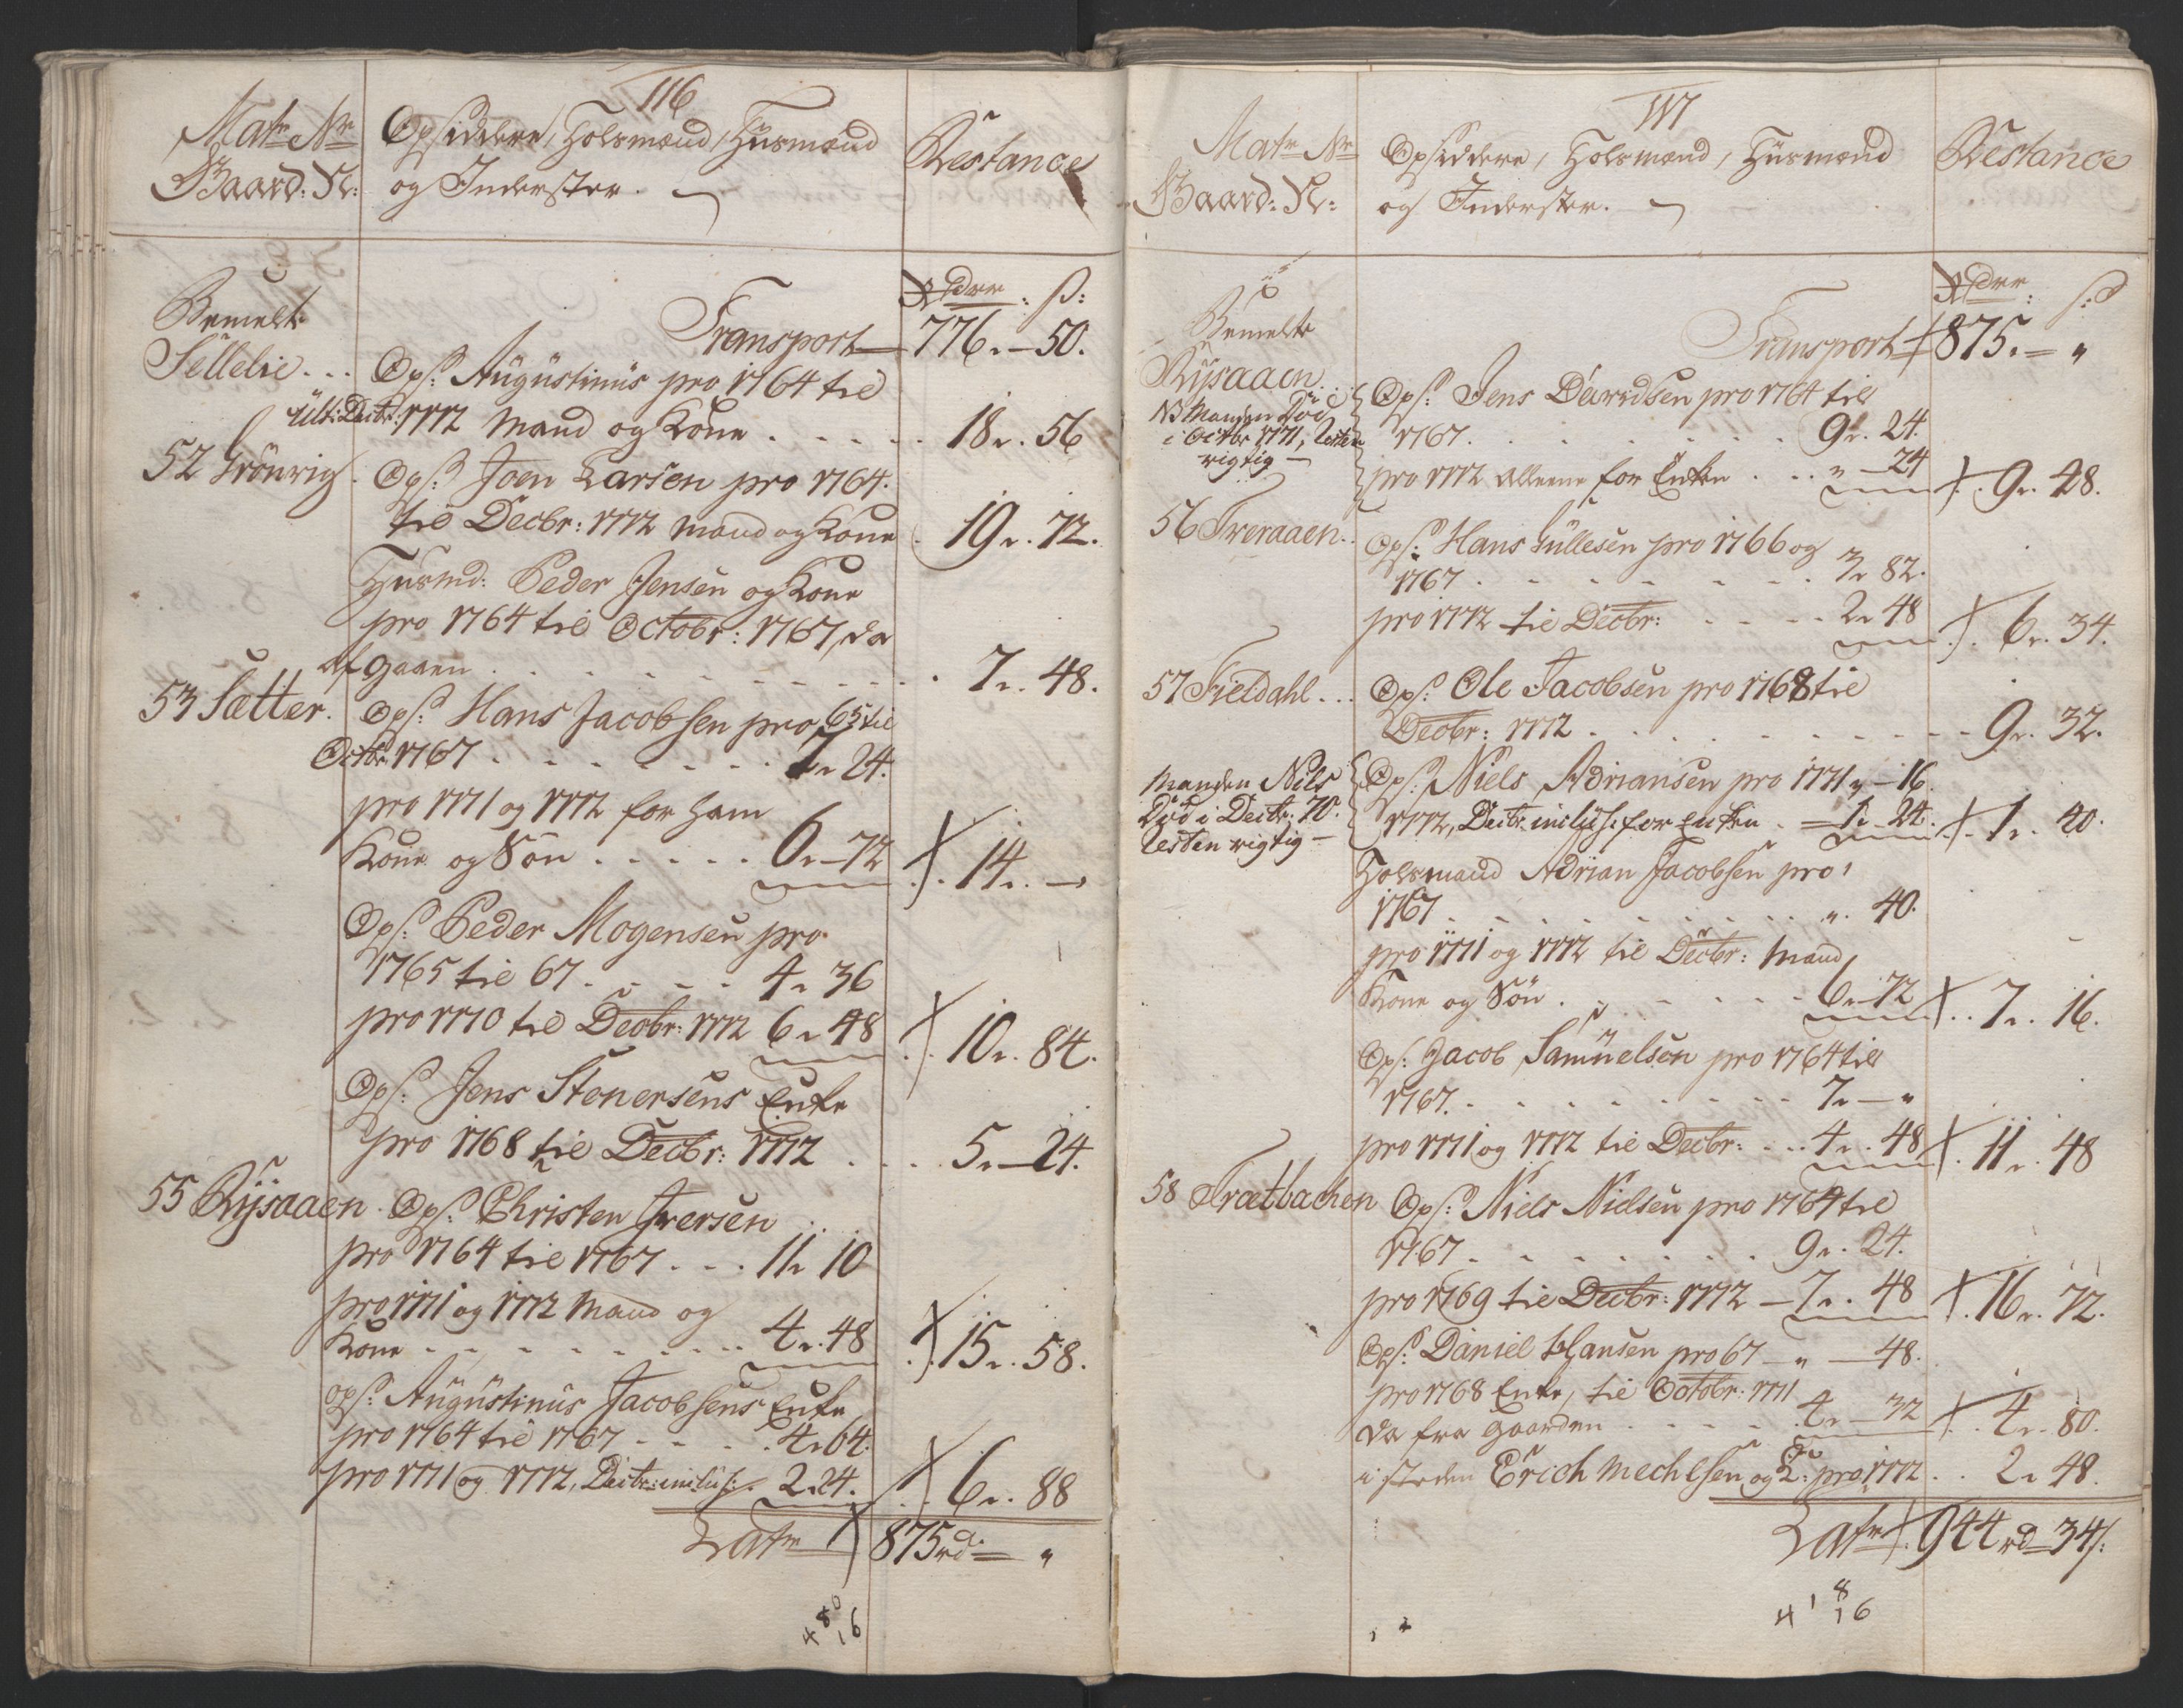 116
Matr Nr
Gaard: Nr:
Opsiddere, Holsmænd, Husmænd
og Inderster.
Restance
Rdlr : ß:
Transport 776. - 50.
Bemelte
Sellelie . . .
Ops: Augustinus pro 1764 til
Ult: Decbr: 1772 Mand og Kone . . . . . 18. 56
52 Grönvig. Ops: Joen Larsen pro 1764.
til Decbr: 1772 Mand og Kone . 19. 72.
Husmd: Peder Jensen og Kone
pro 1764 til Octobr: 1767, da
af Gaaen . . . . . . . . . . 7. 48.
53 Sætter. Ops: Hans Jacobsen pro 65 til
Octbr: 1767 . . . . . . . 7. 24.
pro 1771 og 1772 for ham
Kone og Sön . . . . . 6. 72 14. -
Ops: Peder Mogensen pro
1765 til 67 . . . . . 4. 36
pro 1770 til Decbr: 1772 6. 48 10. 84.
Ops: Jens Stenersens Enke
pro 1768 til Decbr: 1772 . . . . 5. - 24.
55 Rÿsaaen Ops: Christen Iversen
pro 1764 til 1767 . . . 11. 10
pro 1771 og 1772 Mand og
Kone . . . . . . . . . 4. 48 15. 58.
ops: Augustinus Jacobsens Enke
pro 1764 til 1767 . . . . 4. 64.
pro 1771 og 1772, Decbr: inclus: 2. 24. 6. 88
Latr 875 rd: = "
8
4 16
117
Matr Nr
Gaard: Nr:
Opsiddere, Holsmænd, Husmænd
og Inderster.
Restance
Rdlr: ß:
Transport 875. = "
Bemelte
Rÿsaaen.
NB Manden Död
i Octbr 1771, Resten
rigtig -
Ops: Jens Davidsen pro 1764 till
1767 . . . . . . . . . 9. 24.
pro 1772 alleene for Enken . . . " - 24 9. 48.
56 Tveraaen . . Ops: Hans Gullesen pro 1766 og
1767 . . . . . . . . 3. 82.
pro 1772 til Decbr: . . . . . 2. 48 6. 34.
57 Fieldahl . . . Ops: Ole Jacobsen pro 1768 til
Decbr: 1772 . . . . . . . . . . . 9. 32.
Manden Nils
Död i Decbr: 70.
Resten rigtig -
Ops: Niels Adriansen pro 1771 " - 16.
1772, Decbr: inclus: for Enken . - 1. 24. 1. 40.
Holsmand Adrian Jacobsen pro
1767 . . . . . . . . . . " . 40.
pro 1771 og 1772 til Decbr: Mand,
Kone og Sön . . . . . . . 6. 72 7. 16.
Ops: Jacob Samuelsen pro 1764 till
1767. . . . . . . . . . 7. - "
pro 1771 og 1772 til Decbr: . . . 4. 48 11. 48
58 Trætbachen Ops: Niels Nielsen pro 1764 til
1767 . . . . . . . . . 9. 24.
pro 1769 til Decbr: 1772 - 7. 48 16. 72.
Ops: Daniel Hansen pro 67 - " - 48.
pro 1768 Enke, til Octobr: 1771
da fra Gaarden . . . . . . 4. 32 4. 80.
i steden Erich Mechelsen og Q: pro 1772 . . 2. 48.
Latr 944 rd 34 ß:
8
4 1 16